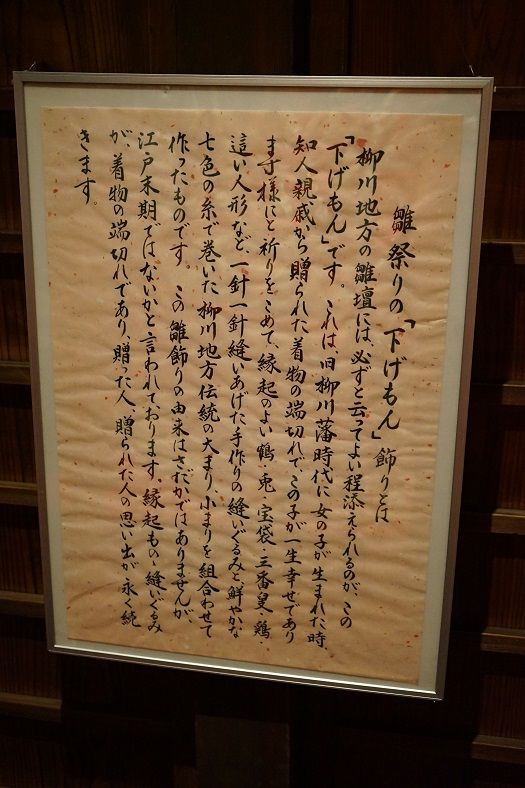 雛祭りの「下げもん」飾りとは
柳川地方の雛壇には、必ずと云ってよい程添えられるのが、この
「下げもん」です。これは、旧柳川藩時代に女の子が生まれた時、
知人親戚から贈られた着物の端切れで、この子が一生幸せであり
ます様にと祈りをこめて、縁起のよい鶴・兎・宝袋・三番叟・鶏・
這い人形など、一針一針縫いあげた手作りの縫いぐるみと、鮮やかな
七色の糸で巻いた柳川地方伝統の大まり、小まりを組合わせて
作ったものです。この雛飾りの由来はさだかではありませんが、
江戸末期ではないかと言われております。縁起もの縫いぐるみ
が、着物の端切れであり、贈った人、贈られた人の思い出が永く続
きます。